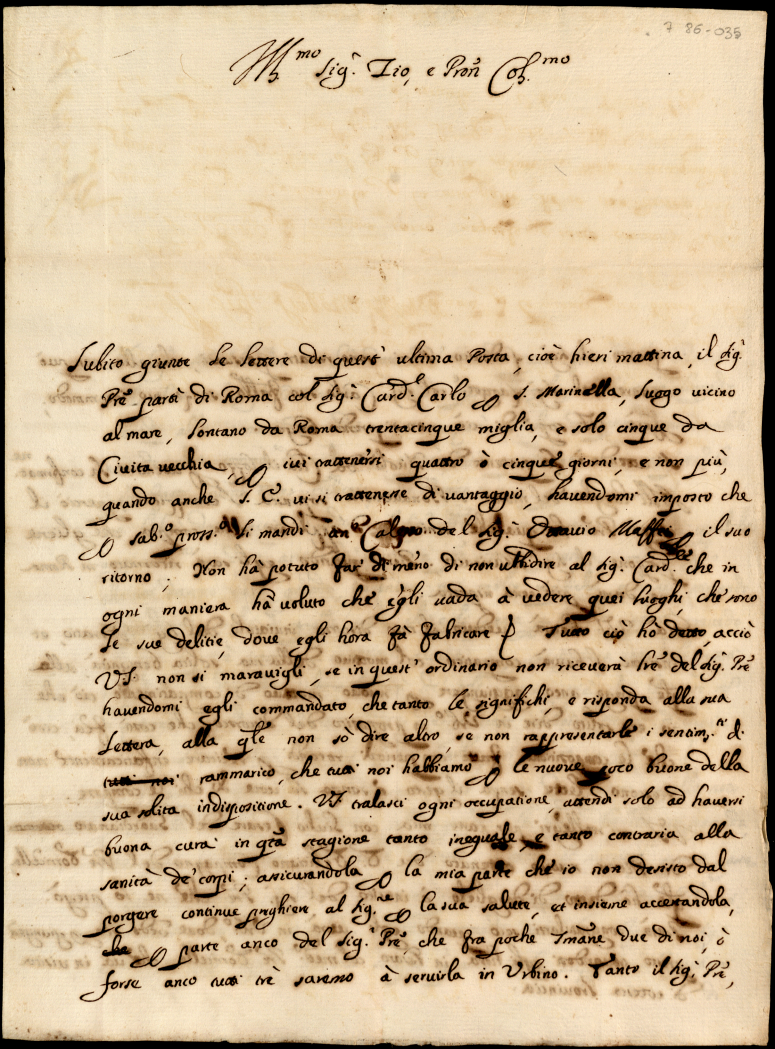 7 86-035
Ill.mo Sig.r Zio, e Pron Col.mo
Subito giunte le lettere di quest' ultima Posta, cioè hieri mattina, il Sig.r
Pre partì di Roma col Sig.r Card.e Carlo p S. Marinella, luogo vicino
al mare, lontano da Roma trentacinque miglia, e solo cinque da
Civita vecchia, p ivi trattenersi quattro ò cinque giorni, e non più,
quando anche S. E. vi si trattenesse di vantaggio, havendomi imposto che
p sab.o pross.o li mandi un Cal del Sig.r Ottavio Maffei p il suo
ritorno; Non ha potuto far di meno di non ubbidire al Sig.r Card.e che in
ogni maniera ha voluto che egli vada à vedere quei luoghi, che sono
le sue delitie, dove egli hora fà fabricare. Tutto ciò hò detto, acciò
VS. non si maravigli, se in quest' ordinario non riceverà lre del Sig.r Pre
havendomi egli commandato, che tanto le significhi, e risponda alla sua
lettera, alla qle non sò dire altro, se non rappresentarle i sentim.ti di
tutti noi rammarico, che tutti noi habbiamo p le nuove poco buone della
sua solita indispositione. VS. tralasci ogni occupatione, attendi solo ad haversi
buona cura in qta stagione tanto ineguale, e tanto contraria alla
sanità de' corpi; assicurandola p la mia parte che io non desisto dal
porgere continue preghiere al Sig.re p la sua salute, et insieme accertandola,
che p parte anco del Sig.r Pre, che fra poche Smane due di noi, ò
forse anco tutti trè saremo à servirla in Urbino. Tanto il Sig.r Pre,